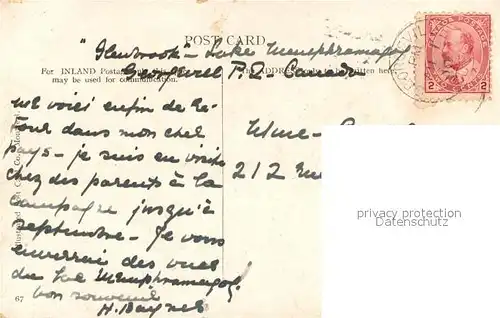 POST CARD
"Glenbrook" - Lake Memphramagog
Georgeville P.Q. Canada
For INLAND Postage
may be used for communication.
The ADDRESS written here
CANADA POSTAGE
2 2
Me voici enfin de re-
tour dans mon cher
pays - je suis en visite
chez des parents à la
campagne jusqu'à
Septembre - Je vous
enverrai des vues
du Lac Memphramagog
bon souvenir
H. Baynes
Mme
212
67
privacy protection
Datenschutz